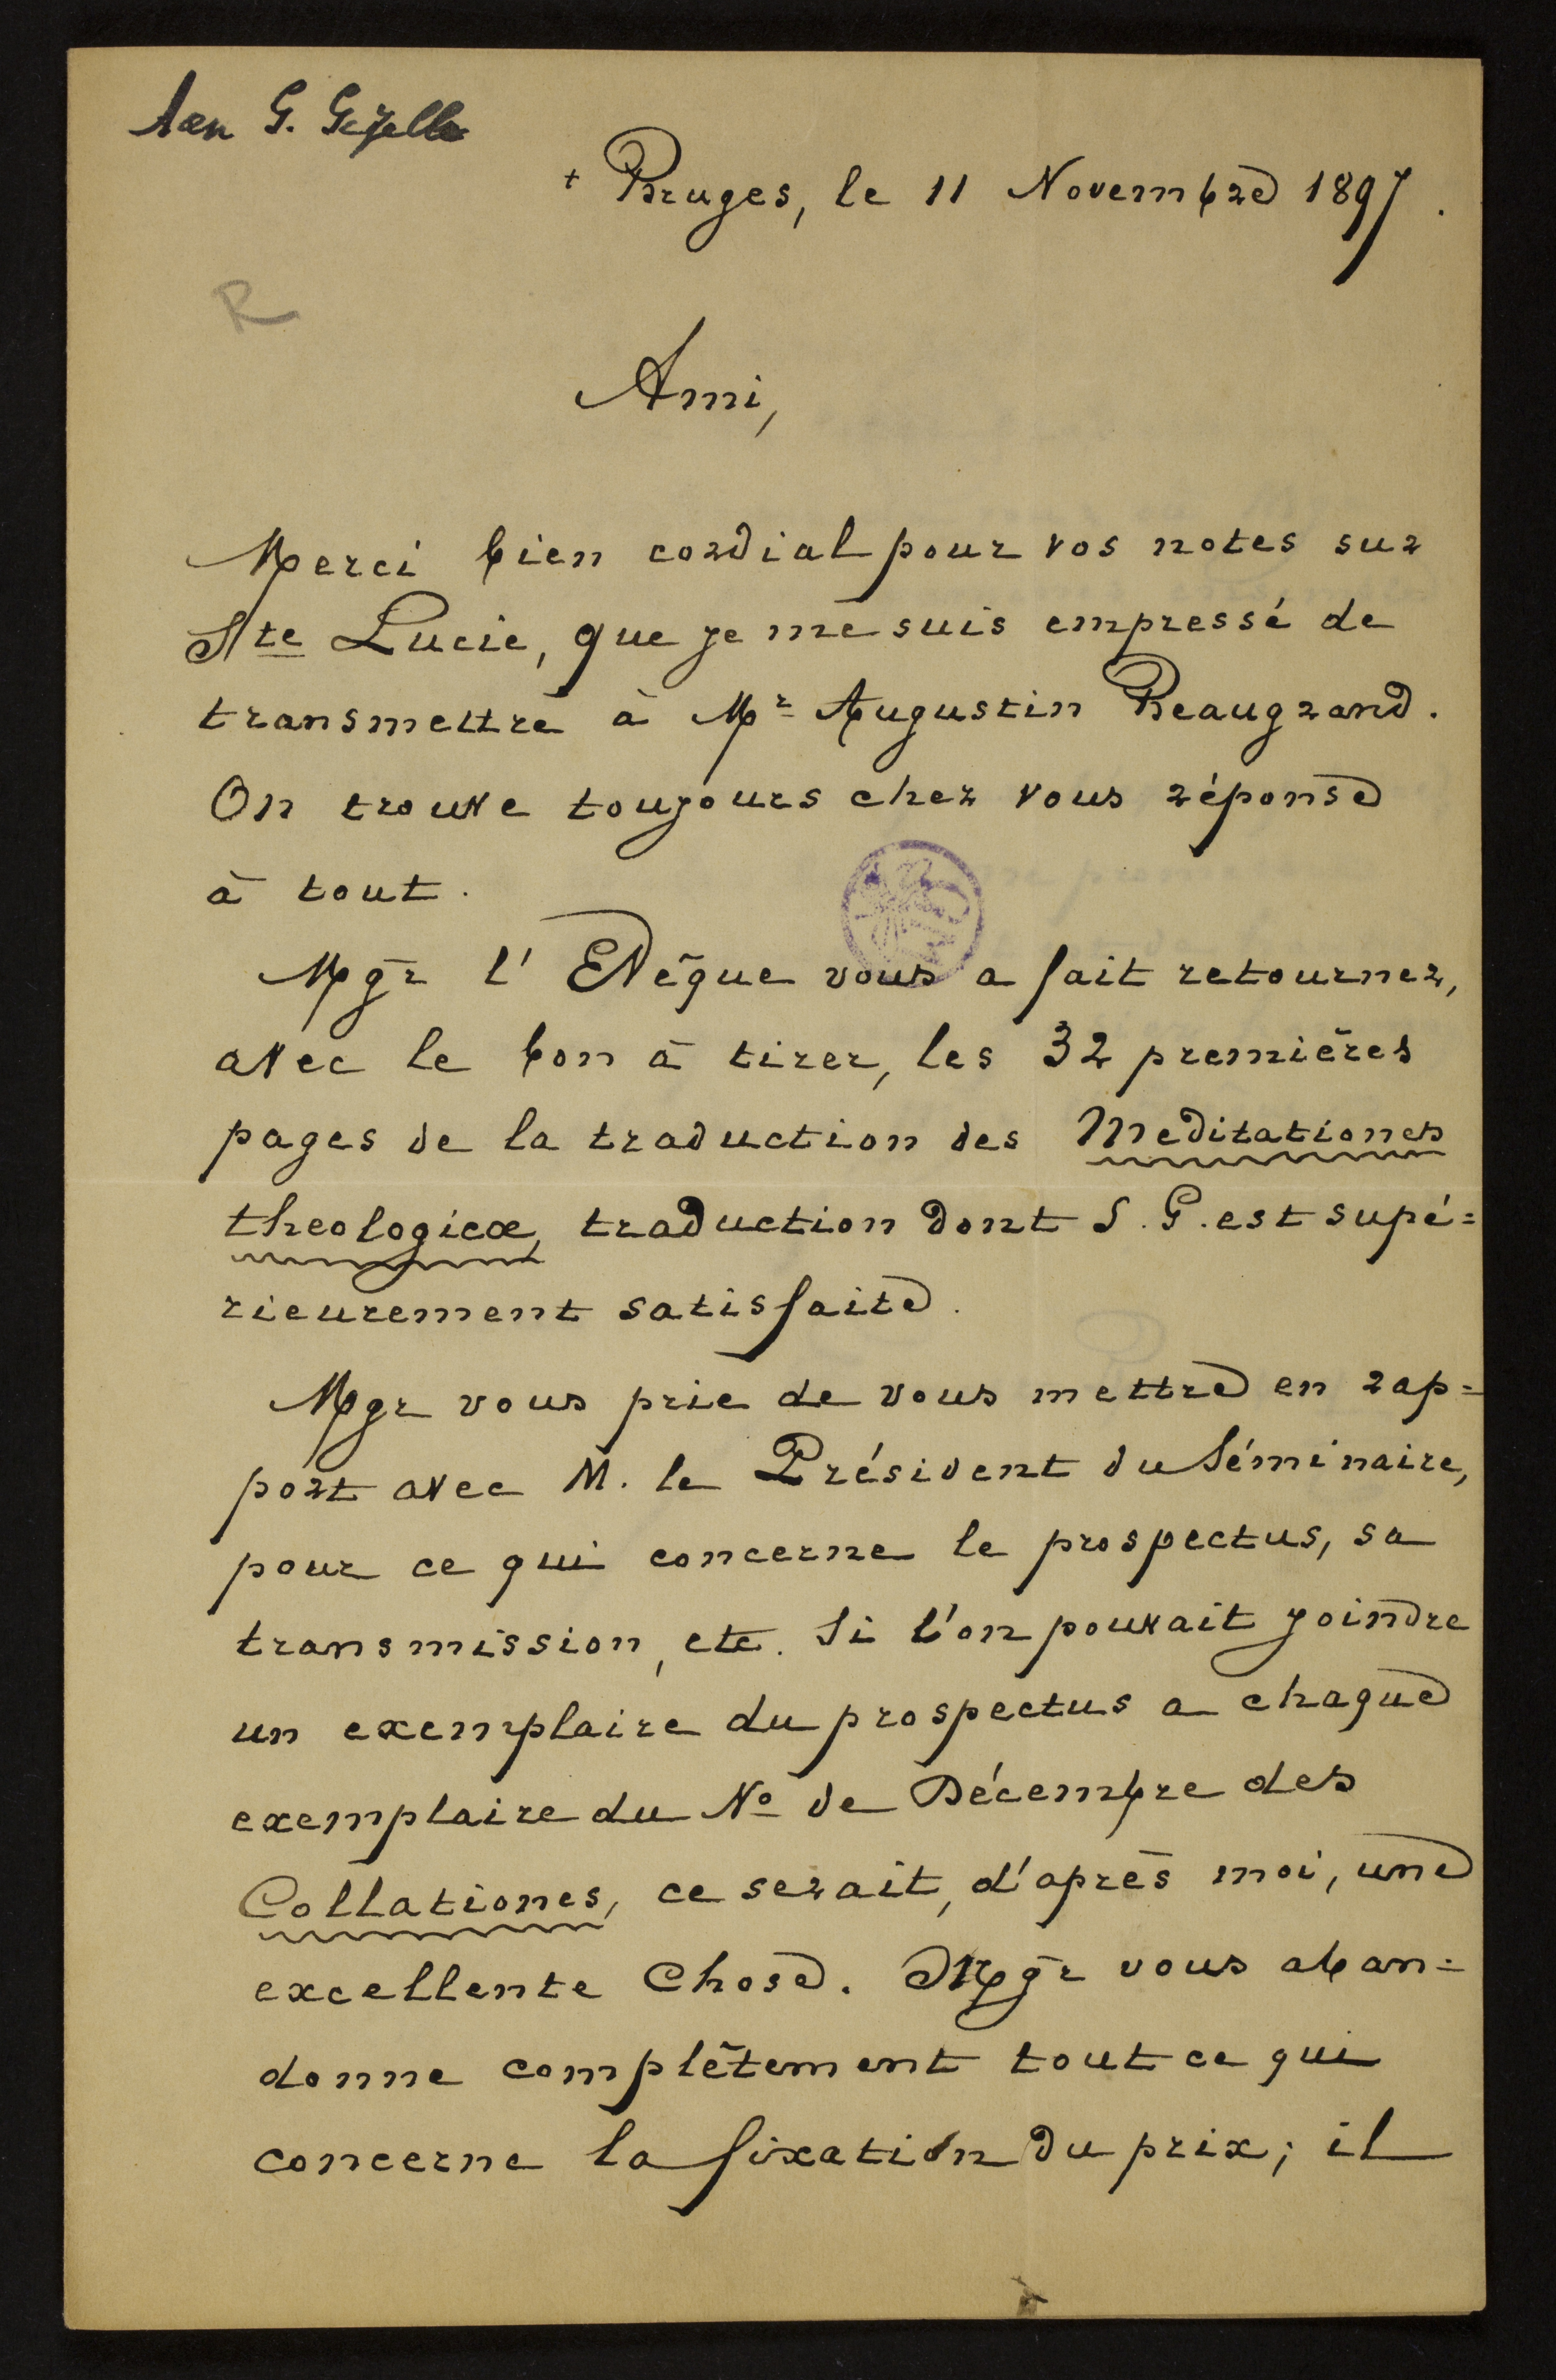 Aan G. Gezelle
+ Bruges, le 11 Novembre 1897.
R
Ami,
Merci bien cordial pour vos notes sur
Ste Lucie, que je me suis empressé de
transmettre à Mr Augustin Beaugrand.
On trouve toujours chez vous réponse
à tout.
Mgr l'Evêque vous a fait retourner,
avec le bon à tirer, les 32 premières
pages de la traduction des Meditationes
theologicæ, traduction dont S. G. est supé=
rieurement satisfaite.
Mgr vous prie de vous mettre en rap=
port avec M. le Président du Séminaire,
pour ce qui concerne le prospectus, sa
transmission, etc. Si l'on pouvait joindre
un exemplaire du prospectus a chaque
exemplaire du No de Décembre des
Collationes, ce serait, d'après moi, une
excellente chose. Mgr vous aban=
donne complètement tout ce qui
concerne la fixation du prix; il